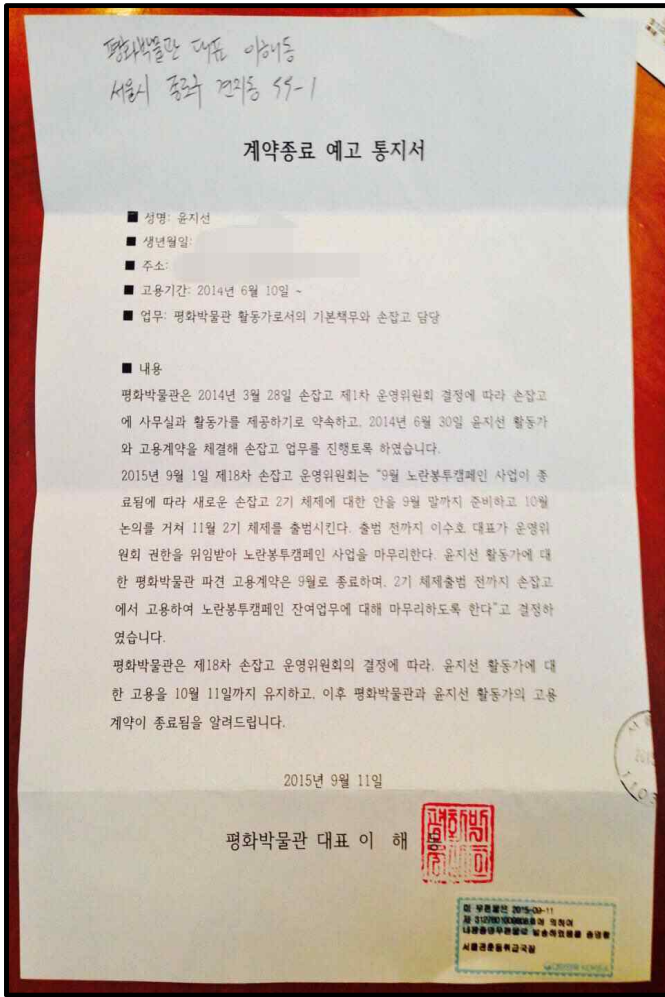 평화박물관 대표 이해동
서울시 종로구 견지동 99-1
계약종료 예고 통지서
■ 성명: 윤지선
■ 생년월일:
■ 주소:
■ 고용기간: 2014년 6월 10일 ~
■ 업무: 평화박물관 활동가로서의 기본책무와 손잡고 담당
■ 내용
평화박물관은 2014년 3월 28일 손잡고 제1차 운영위원회 결정에 따라 손잡고
에 사무실과 활동가를 제공하기로 약속하고, 2014년 6월 30일 윤지선 활동가
와 고용계약을 체결해 손잡고 업무를 진행토록 하였습니다.
2015년 9월 1일 제18차 손잡고 운영위원회는 "9월 노란봉투캠페인 사업이 종
료됨에 따라 새로운 손잡고 2기 체제에 대한 안을 9월 말까지 준비하고 10월
논의를 거쳐 11월 2기 체제를 출범시킨다. 출범 전까지 이수호 대표가 운영위
원회 권한을 위임받아 노란봉투캠페인 사업을 마무리한다. 윤지선 활동가에 대
한 평화박물관 파견 고용계약은 9월로 종료하며, 2기 체제출범 전까지 손잡고
에서 고용하여 노란봉투캠페인 잔여업무에 대해 마무리하도록 한다"고 결정하
였습니다.
평화박물관은 제18차 손잡고 운영위원회의 결정에 따라, 윤지선 활동가에 대
한 고용을 10월 11일까지 유지하고, 이후 평화박물관과 윤지선 활동가의 고용
계약이 종료됨을 알려드립니다.
2015년 9월 11일
평화박물관 대표 이 해
이 우편물은 2015-09-11
내용증명우편물로 발송하였음을 증명함